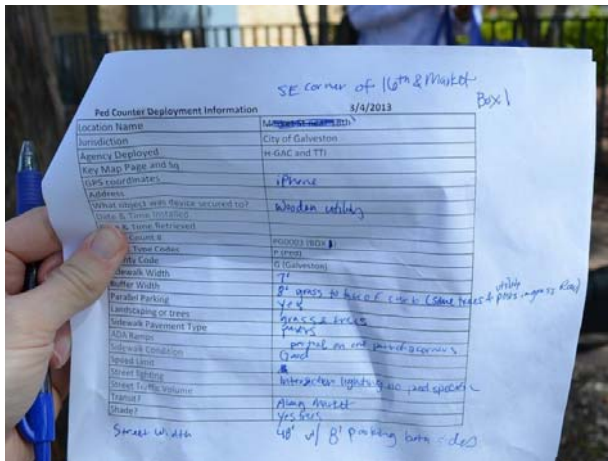 SE corner of 16th & Market
Box 1
Ped Counter Deployment Information 3/4/2013
Location Name
Jurisdiction City of Galveston
Agency Deployed H-GAC and TTI
Key Map Page and Sq
GPS coordinates iPhone
Address
What object will device secured to? Wooden utility
Date & Time Installed
& Time Retrieved
Count # PG0003 (BOX 1)
Type Codes P (Ped)
County Code G (Galveston)
Sidewalk Width 7'
Buffer Width 8' grass to base of curb (some trees & utility posts in grass
Parallel Parking Yes
Landscaping or trees grass & trees
Sidewalk Pavement Type pavers
ADA Ramps on
Sidewalk Condition Good
Speed Limit
Street lighting Intersection lighting no
Street Traffic Volume
Transit? Along Market
Shade? Yes
Street Width 48' w/ 8' parking both sides